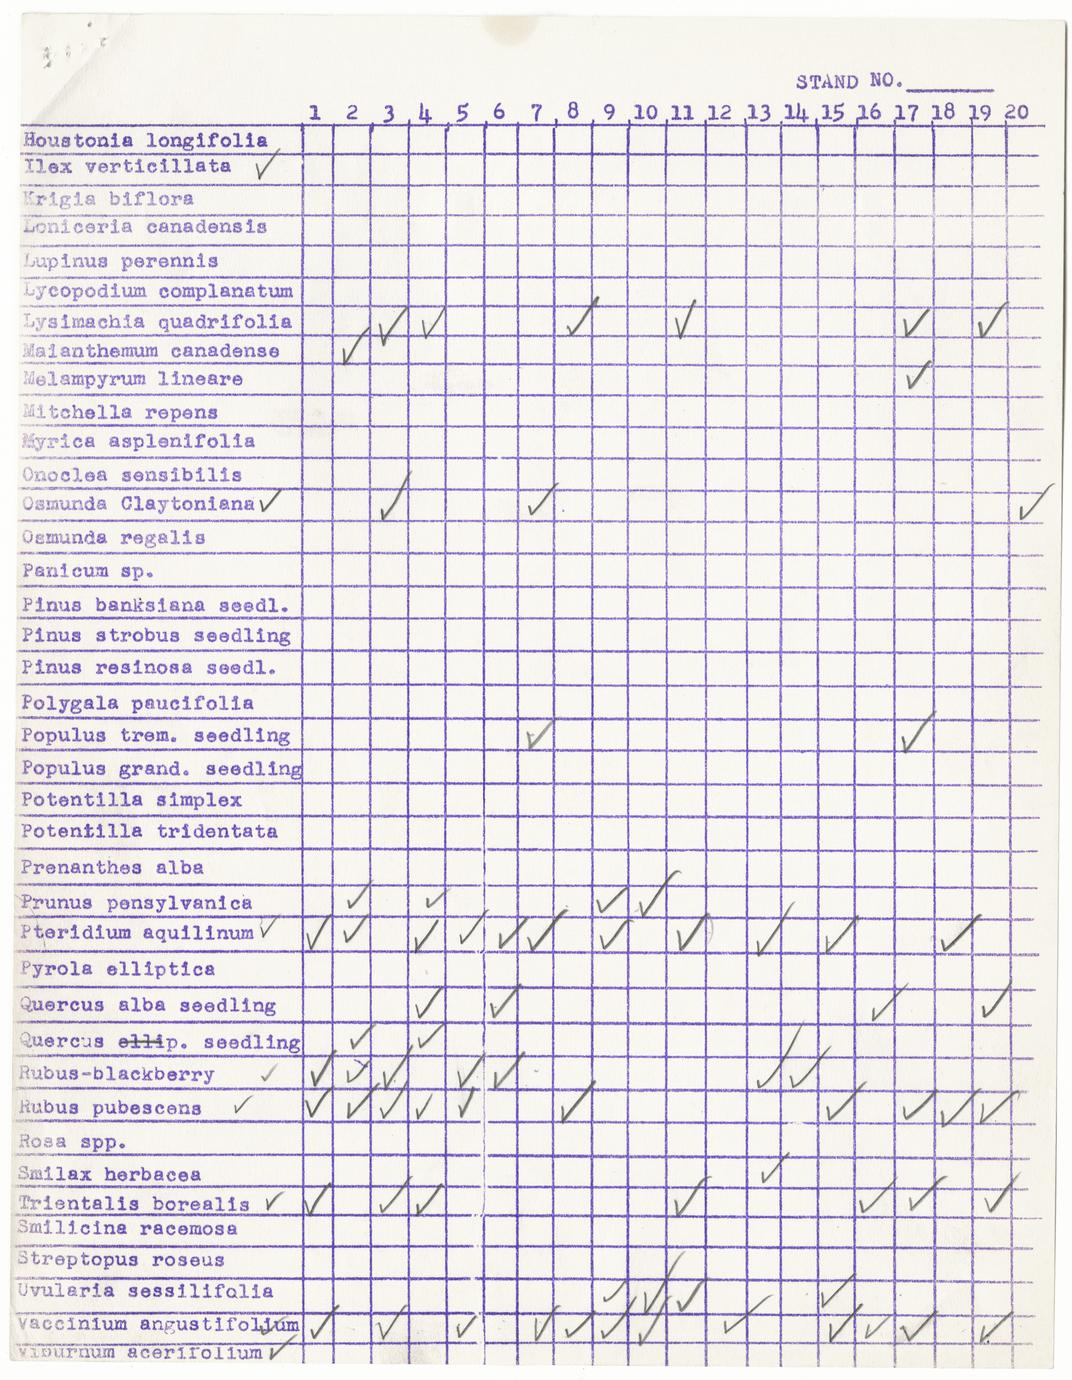 STAND NO.
1 2 3 4 5 6 7 8 9 10 11 12 13 14 15 16 17 18 19 20
Houstonia longifolia
Ilex verticillata ✓
Krigia biflora
Loniceria canadensis
Lupinus perennis
Lycopodium complanatum
Lysimachia quadrifolia ✓ ✓ ✓ ✓ ✓ ✓
Maianthemum canadense ✓
Melampyrum lineare ✓
Mitchella repens
Myrica asplenifolia
Onoclea sensibilis
Osmunda Claytoniana ✓ ✓ ✓ ✓
Osmunda regalis
Panicum sp.
Pinus banksiana seedl.
Pinus strobus seedling
Pinus resinosa seedl.
Polygala paucifolia
Populus trem. seedling ✓ ✓
Populus grand. seedling
Potentilla simplex
Potentilla tridentata
Prenanthes alba
Prunus pensylvanica ✓ ✓ ✓ ✓
Pteridium aquilinum ✓ ✓ ✓ ✓ ✓ ✓ ✓ ✓ ✓ ✓ ✓ ✓
Pyrola elliptica
Quercus alba seedling ✓ ✓ ✓ ✓
Quercus ellip. seedling ✓ ✓
Rubus-blackberry ✓ ✓ ✓ ✓ ✓ ✓ ✓ ✓
Rubus pubescens ✓ ✓ ✓ ✓ ✓ ✓ ✓ ✓ ✓ ✓ ✓
Rosa spp.
Smilax herbacea ✓
Trientalis borealis ✓ ✓ ✓ ✓ ✓ ✓ ✓ ✓
Smilicina racemosa
Streptopus roseus
Uvularia sessilifolia ✓ ✓ ✓ ✓
Vaccinium angustifolium ✓ ✓ ✓ ✓ ✓ ✓ ✓ ✓ ✓ ✓ ✓ ✓ ✓
Viburnum acerifolium ✓